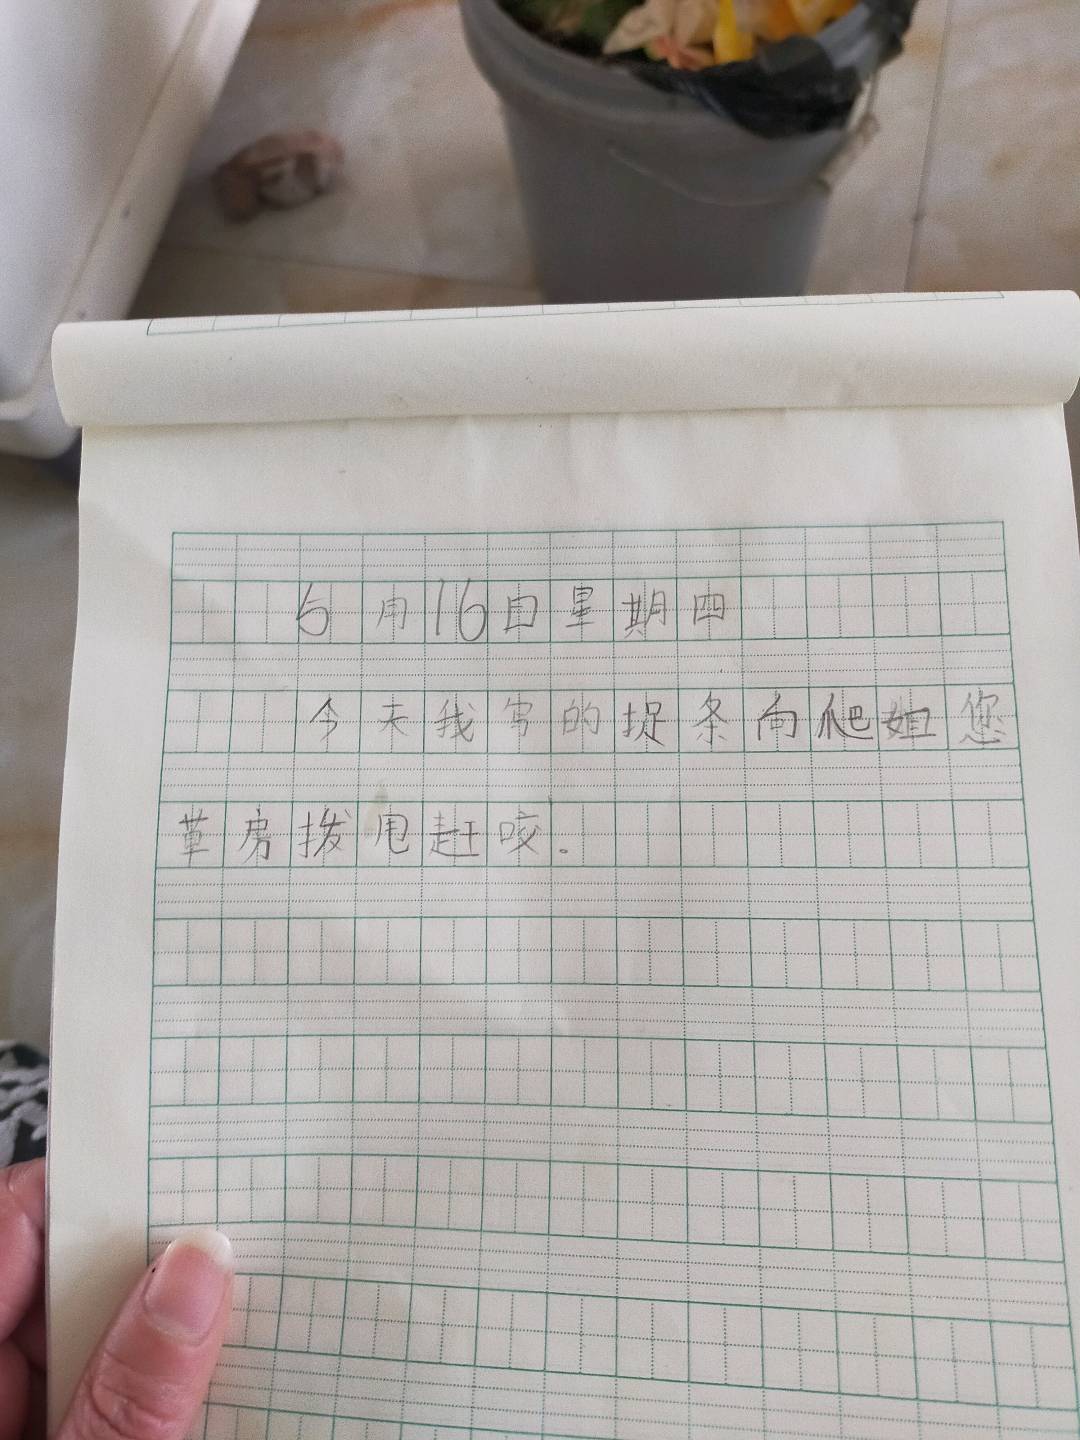 5月16日星期四
今天我写的捉条向爬姐您
草房拨甩赶咬。